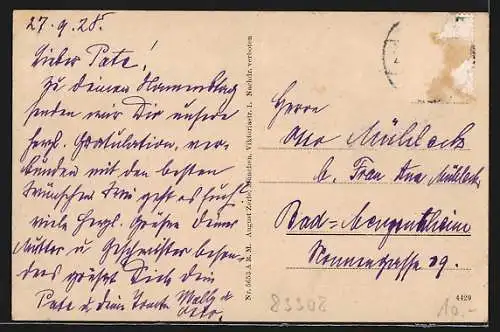 27.9.28.
Lieber Pate!
Zu deinem Namenstag
senden wir Dir unsere
herzl. Gratulation, ver-
bunden mit den besten
Wünschen. Wie geht es Euch?
viele herzl. Grüße Deine
Mutter u. Geschwister beson-
ders grüßt Dich Dein
Pate u. deine Tante Wally u.
Otto.
Nr. 5653 A R. M. August Zerle, München, Viktoriastr. 1. Nachdr. verboten
Herrn
Otto Mühleck
b. Frau Anna Mühleck
Bad=Mergentheim
Nonnengasse 29.
4429
83308
10.-